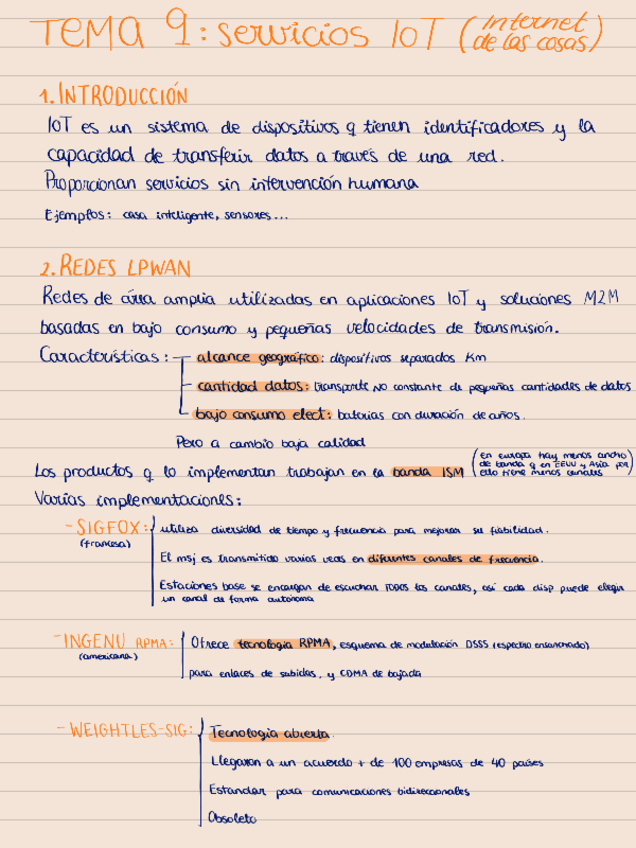 TEMA 9: servicios IoT (Internet de las cosas)
1. INTRODUCCIÓN
IoT es un sistema de dispositivos q tienen identificadores y la
capacidad de transferir datos a través de una red.
Proporcionan servicios sin intervención humana
Ejemplos: casa inteligente, sensores...
2. REDES LPWAN
Redes de área amplia utilizadas en aplicaciones IoT y soluciones M2M
basadas en bajo consumo y pequeñas velocidades de transmisión.
Características: alcance geográfico: dispositivos separados Km
cantidad datos: transporte NO constante de pequeñas cantidades de datos
bajo consumo elect: baterías con duración de años.
Pero a cambio baja calidad
Los productos q lo implementan trabajan en la banda ISM (en europa hay menos ancho
de banda q en EEUU y Asia por
ello tiene menos canales)
Varias implementaciones:
- SIGFOX: utiliza diversidad de tiempo y frecuencia para mejorar su fiabilidad.
(francesa)
El msj es transmitido varias veces en diferentes canales de frecuencia.
Estaciones base se encargan de escuchar TODOS los canales, así cada disp puede elegir
un canal de forma autónoma
- INGENU RPMA: Ofrece tecnología RPMA, esquema de modulación DSSS (espectro ensanchado)
(americana)
para enlaces de subidas, y CDMA de bajada
- WEIGHTLES-SIG: Tecnología abierta
Llegaron a un acuerdo + de 100 empresas de 40 países
Estandar para comunicaciones bidireccionales
Obsoleto